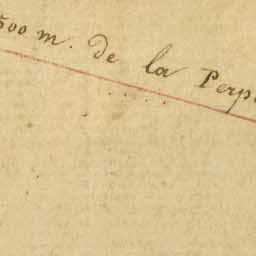 500 m. de la Perp